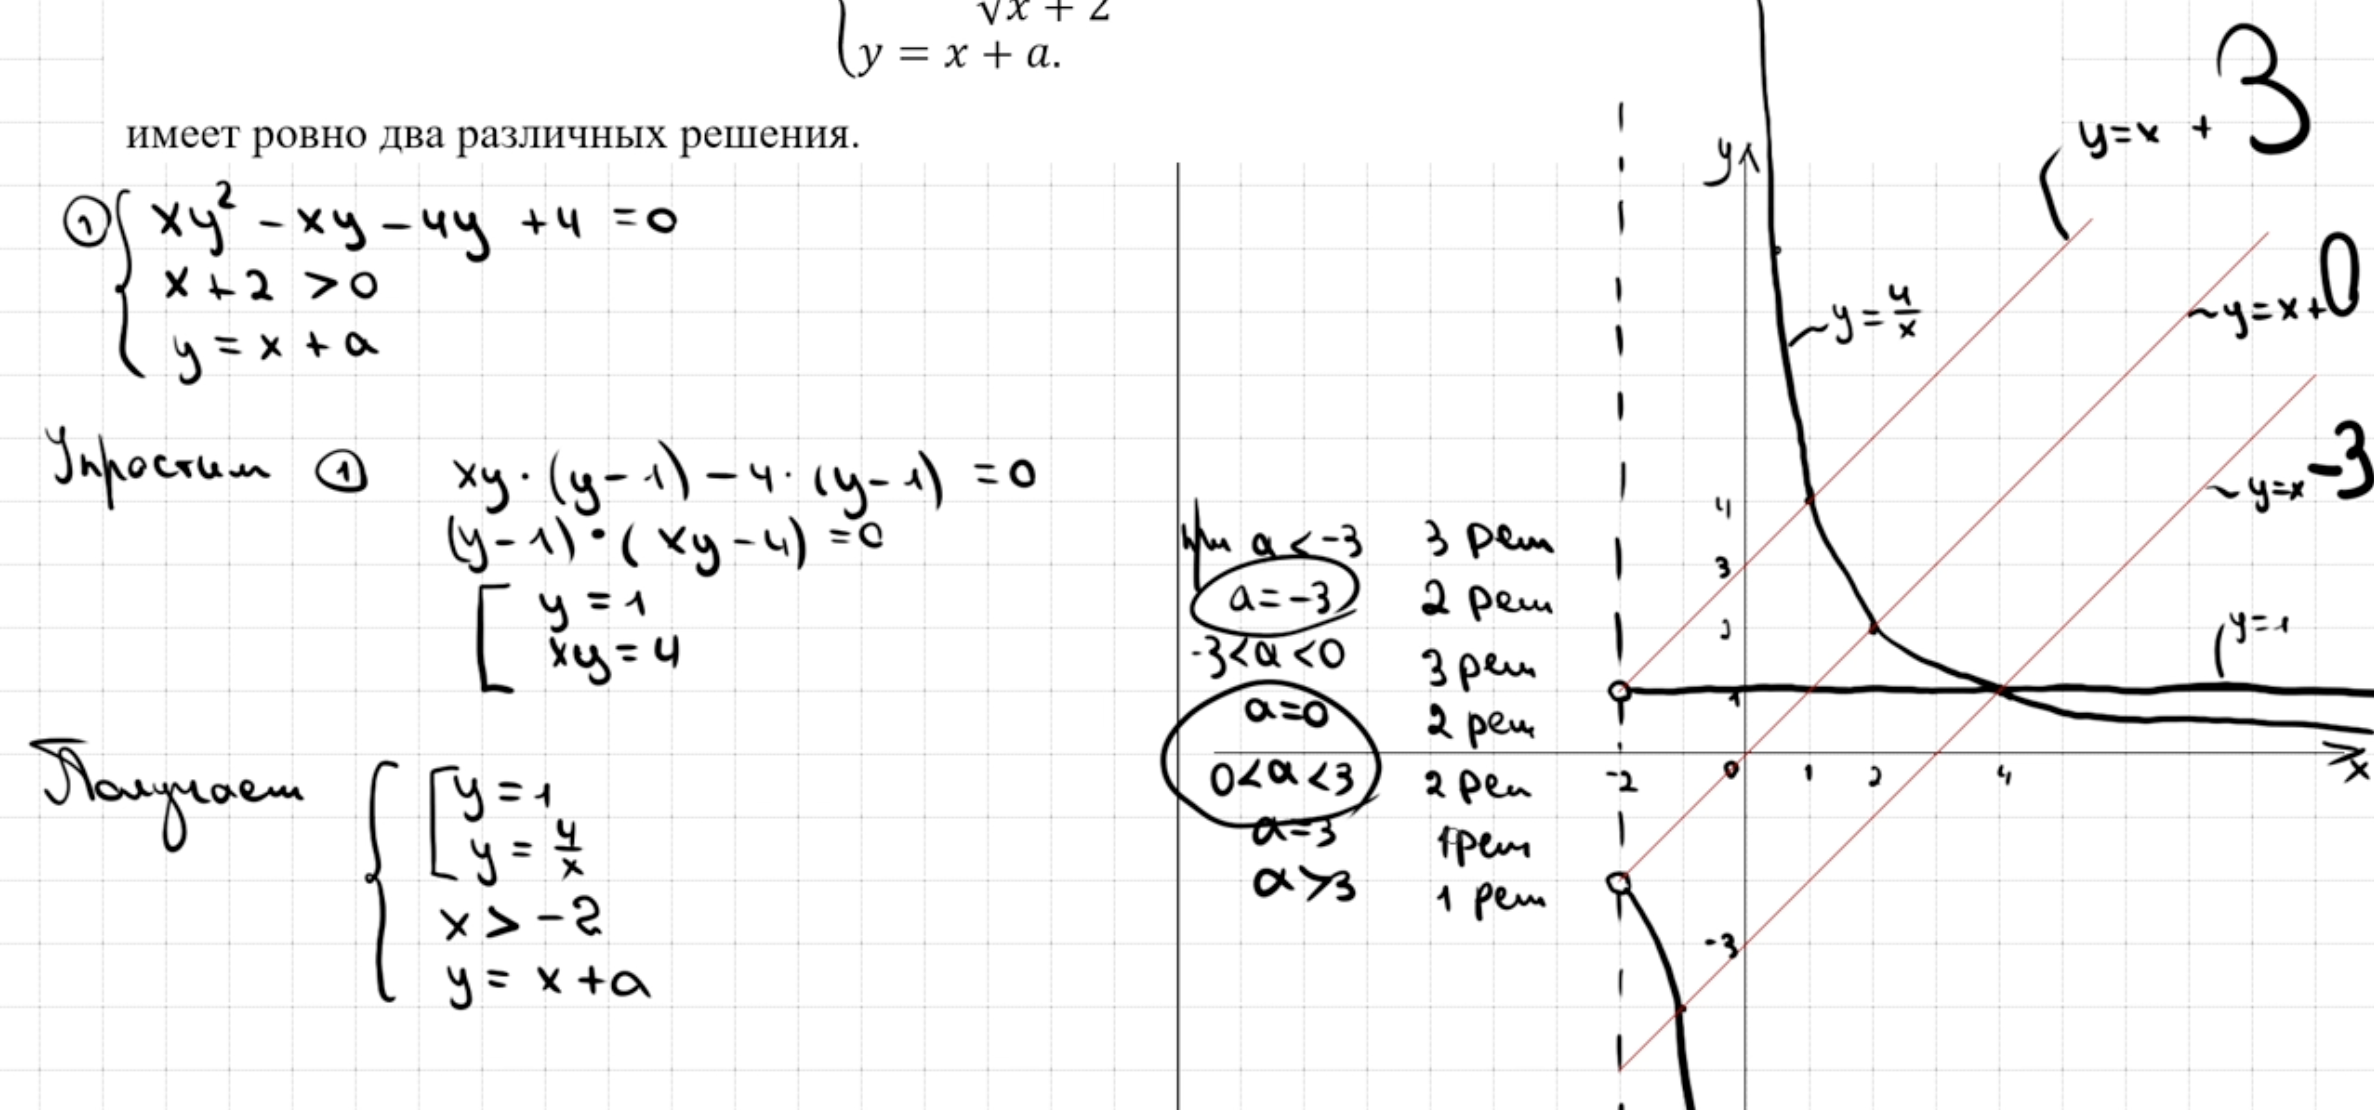 √x + 2
y = x + a.
имеет ровно два различных решения.
① xy² - xy - 4y + 4 = 0
x + 2 > 0
y = x + a
Упростим ① xy · (y - 1) - 4 · (y - 1) = 0
(y - 1) · (xy - 4) = 0
y = 1
xy = 4
Получаем
y = 1
y = 4/x
x > -2
y = x + a
при a < -3 3 реш
a = -3 2 реш
-3 < a < 0 3 реш
a = 0 2 реш
0 < a < 3 2 реш
a = 3 1 реш
a > 3 1 реш
y
y = x + 3
y = x + 0
y = 4/x
y = x - 3
y = 1
4
3
1
-2 0 1 2 4 x
-3